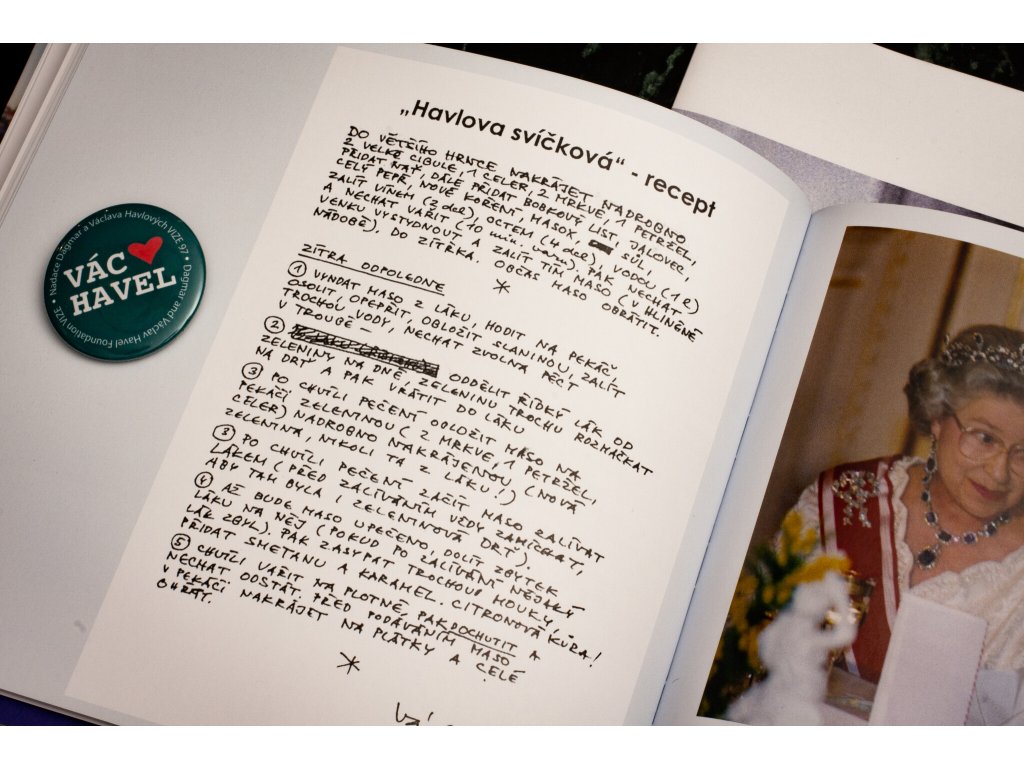 „Havlova svíčková“ - recept
DO VĚTŠÍHO HRNCE NAKRÁJET NADROBNO
2 VELKÉ CIBULE, 1 CELER, 2 MRKVE, 1 PETRŽEL,
PŘIDAT NAŤ, DÁLE PŘIDAT BOBKOVÝ LIST, JALOVEC,
CELÝ PEPŘ, NOVÉ KOŘENÍ, MASOX, SŮL,
ZALÍT VÍNEM (3 del), OCTEM (4 del), VODOU (1 l)
A NECHAT VAŘIT (10 min. varu), PAK NECHAT
VENKU VYSTYDNOUT A ZALÍT TÍM MASO (V HLINĚNÉ
NÁDOBĚ). DO ZÍTŘKA. OBČAS MASO OBRÁTIT.
*
ZÍTRA ODPOLEDNE
① VYNDAT MASO Z LÁKU, HODIT NA PEKÁČ
OSOLIT, OPEPŘIT OBLOŽIT SLANINOU, ZALÍT
TROCHOU VODY, NECHAT ZVOLNA PÉCT
V TROUBĚ –
② ODDĚLIT ŘÍDKÝ LÁK OD
ZELENINY NA DNĚ, ZELENINU TROCHU ROZMAČKAT
NA DRŤ A PAK VRÁTIT DO LÁKU
③ PO CHVÍLI PEČENÍ OBLOŽIT MASO NA
PEKÁČI ZELENINOU (2 MRKVE, 1 PETRŽEL,
CELER) NADROBNO NAKRÁJENOU (NOVÁ
ZELENINA, NIKOLI TA Z LÁKU!)
③ PO CHVÍLI PEČENÍ ZAČÍT MASO ZALÍVAT
LÁKEM (PŘED ZALÍVÁNÍM VŽDY ZAMÍCHAT,
ABY TAM BYLA I ZELENINOVÁ DRŤ)
④ AŽ BUDE MASO UPEČENO, DOLÍT ZBYTEK
LÁKU NA NĚJ (POKUD PO ZALÍVÁNÍ NĚJAKÝ
LÁK ZBYL). PAK ZASYPAT TROCHOU MOUKY,
PŘIDAT SMETANU A KARAMEL. CITRONOVÁ KŮRA!
⑤ CHVÍLI VAŘIT NA PLOTNĚ, PAK DOCHUTIT A
NECHAT ODSTÁT. PŘED PODÁVÁNÍM MASO
V PEKÁČI NAKRÁJET NA PLÁTKY A CELÉ
OHŘÁT.
*
VÁC ♥
HAVEL
Nadace Dagmar a Václava Havlových VIZE 97 •
Dagmar and Václav Havel Foundation VIZE •